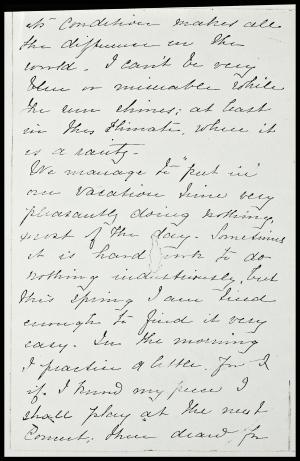 its condition makes all
the difference in the
world. I can't be very
blue or miserable while
the sun shines; at least
in this climate, where it
is a rarity.
We manage to "put in"
our vacation time very
pleasantly doing nothing,
most of the day. Sometimes
it is hard work to do
nothing industriously, but
this spring I am tired
enough to find it very
easy. In the morning
I practice a little, for
if I know my piece I
shall play at the next
Concert; then read, or